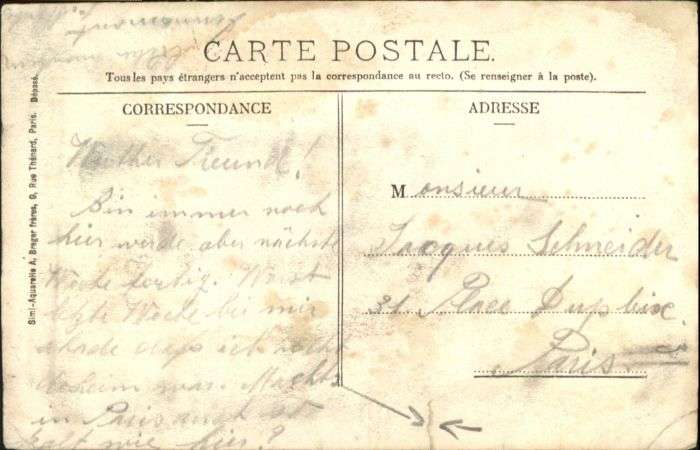 CARTE POSTALE.
Tous les pays étrangers n'acceptent pas la correspondance au recto. (Se renseigner à la poste).
CORRESPONDANCE
ADRESSE
Simi-Aquarelle A, Breger frères, 9, Rue Thénard, Paris. Déposé.
Freund!
Bin immer noch
hier werde aber nächste
Woche fertig. Warst
letzte Woche bei mir
ich nicht
daheim war.
in Paris auch so
kalt wie hier?
Monsieur
Jacques Schneider
21 Place Dupleix
Paris